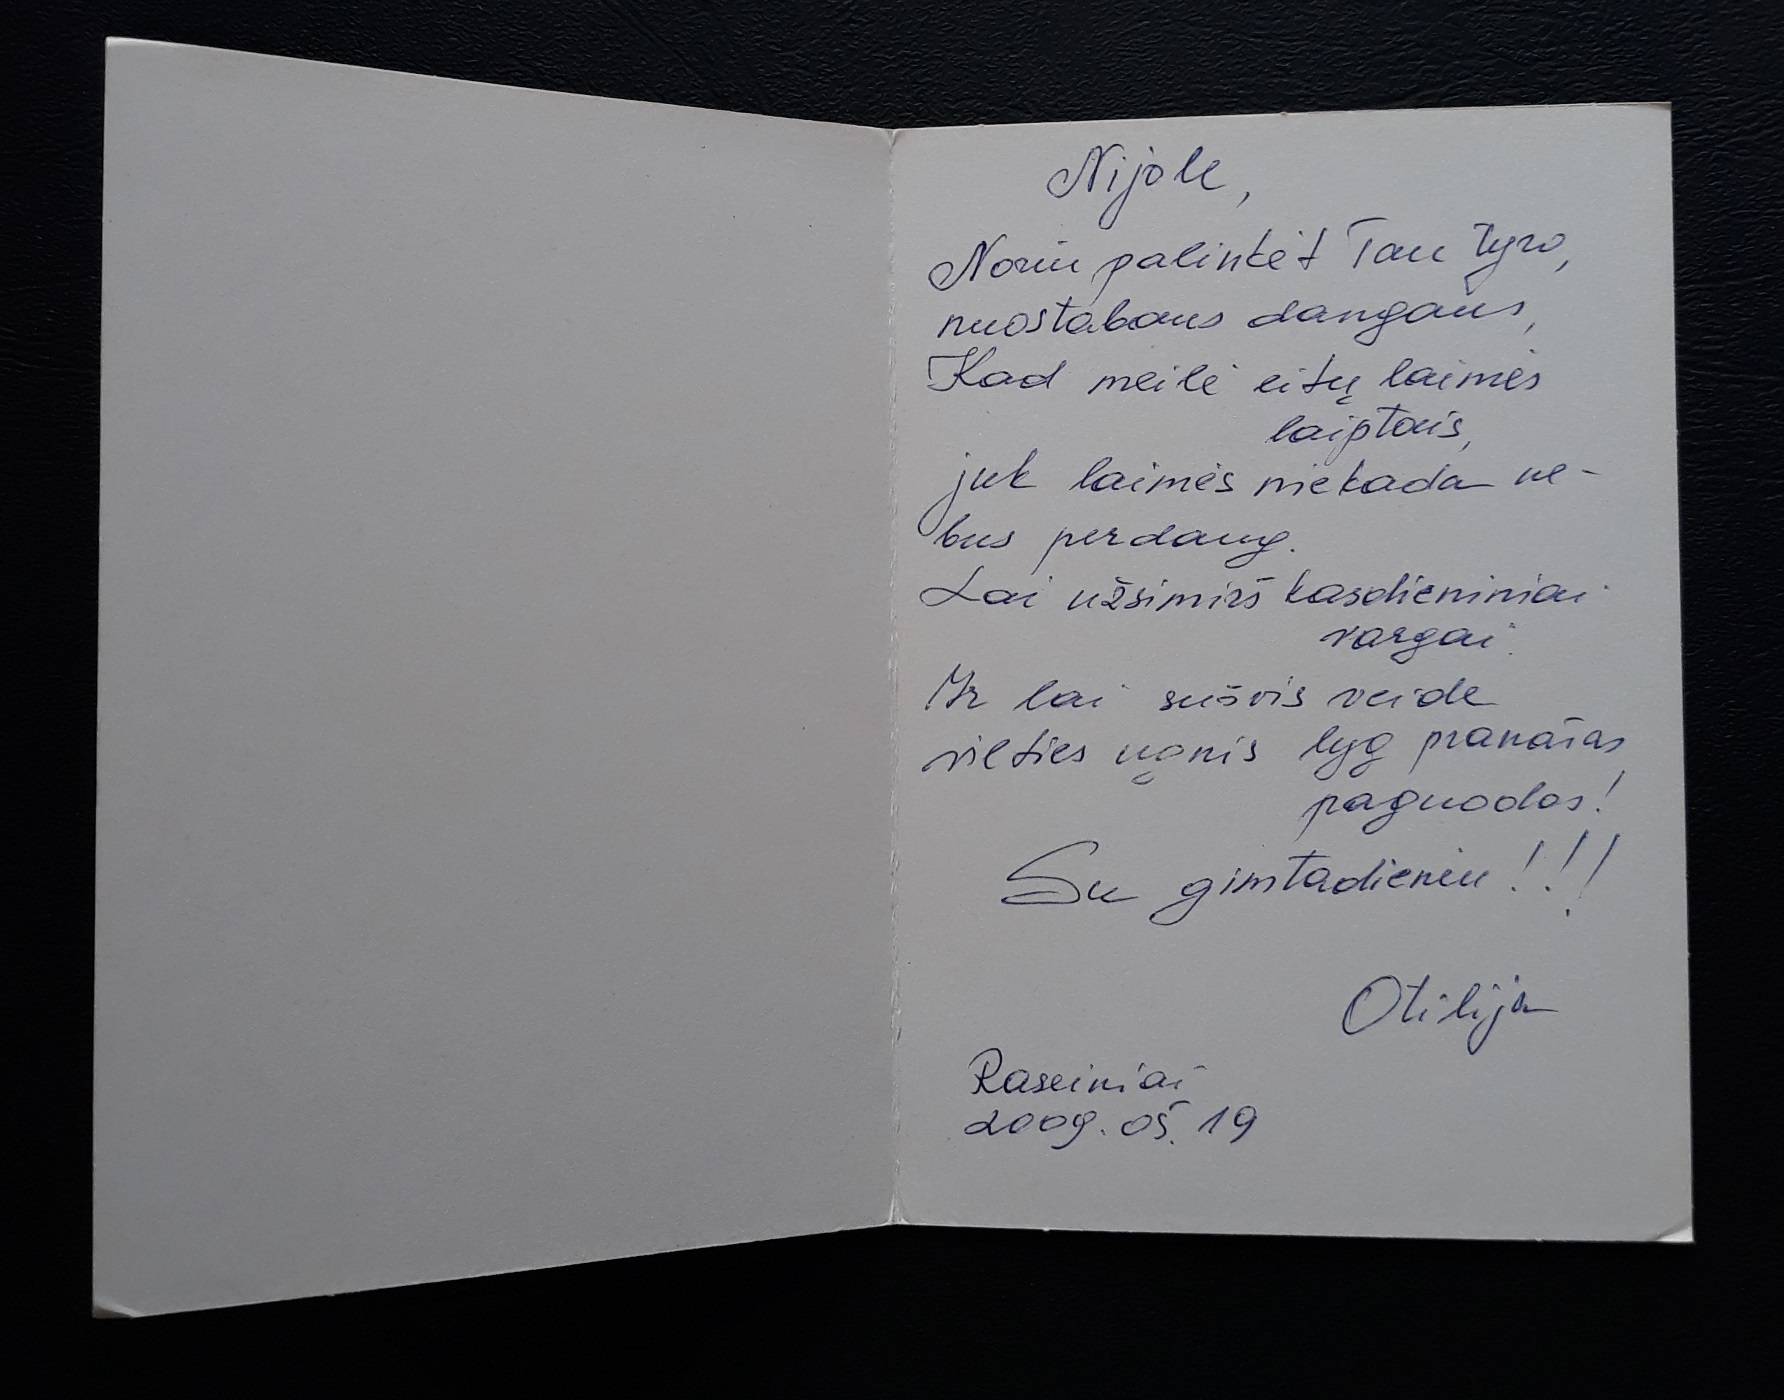 Nijole,
Noriu palinkėt Tau tyro,
nuostabaus dangaus,
Kad meilė eitų laimės
laiptais,
juk laimės niekada ne-
bus perdaug.
Lai užsimirš kasdieniniai
vargai.
Ir lai sušvis veide
vilties ugnis lyg pranašas
paguodos!
Su gimtadieniu!!!
Otilija
Raseiniai
2009.05.19